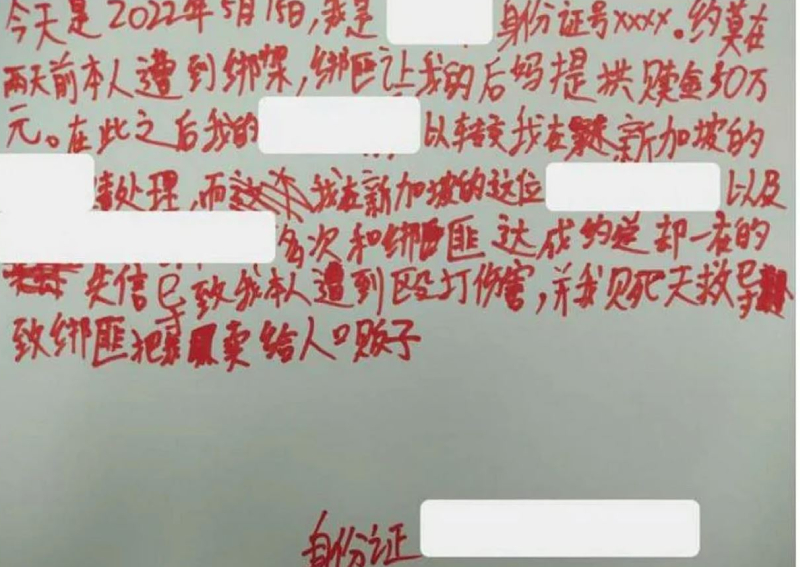 今天是2022年5月15日,我是 身份证号xxxx。约莫在
两天前本人遭到绑架,绑匪让我的后妈提供赎金50万
元。在此之后我的 以转交我在 新加坡的
处理,而 我在新加坡的这位 以及
多次和绑匪达成约定却一在的
失信导致我本人遭到殴打伤害,并我见死不救导
致绑匪把 卖给人口贩子
身份证